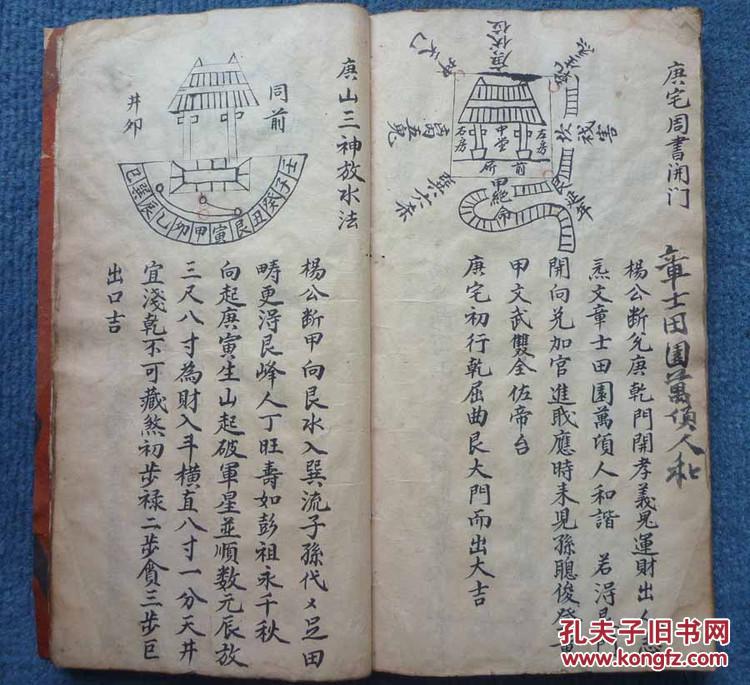 庚宅周書開门
庚伏位
左房
中堂
右房
前
所
甲絕命
艮延年
坎
巽六杀
章士田園萬頃人和
楊公断兌庚乾門開孝義晃運財出
文章士田園萬頃人和諧 若淂
開向兑加官進戝應時未見孫聰俊發
甲文武雙全佐帝台
庚宅初行乾屈曲艮大門而出大吉
庚山三神放水法
同前
井卯
巳巽辰乙卯甲寅艮丑癸子壬
楊公断甲向艮水入巽流子孫代〻足田
畴更淂艮峰人丁旺壽如彭祖永千秋
向起庚寅生山起破軍星並順数元辰放
三尺八寸為財入斗横直八寸一分天井
宜淺乾不可藏煞初步禄二步貪三步巨
出口吉
孔夫子旧书网
www.kongfz.com